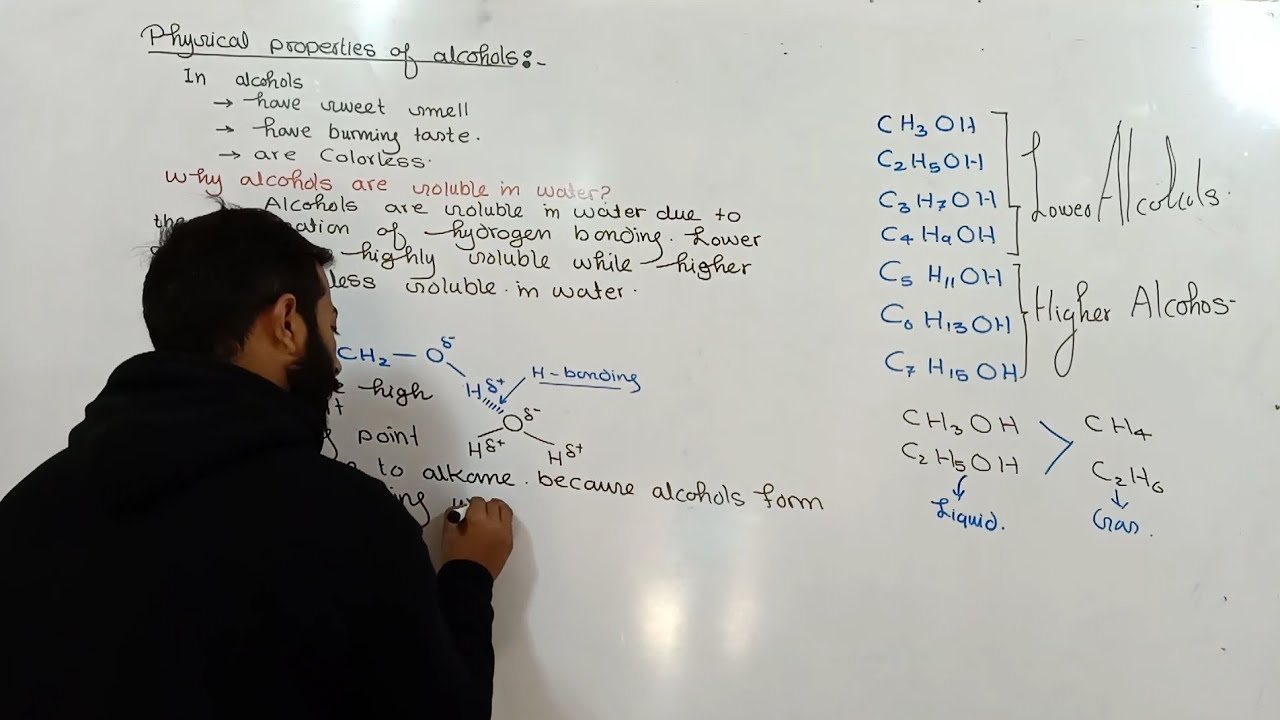 Physical properties of alcohols:-
In alcohols
→ have sweet smell
→ have burning taste.
→ are Colorless.
Why alcohols are soluble in water?
Alcohols are soluble in water due to
the ation of hydrogen bonding. Lower
highly soluble while higher
less soluble in water.
CH2 — O δ-
H δ+
H-bonding
O δ-
H δ+
H δ+
high
point
to alkane. because alcohols form
ing
CH3OH
C2H5OH
C3H7OH
C4H9OH
Lower Alcohols.
C5H11OH
C6H13OH
C7H15OH
Higher Alcohos-
CH3OH > CH4
C2H5OH C2H6
↓ ↓
Liquid. Gas.